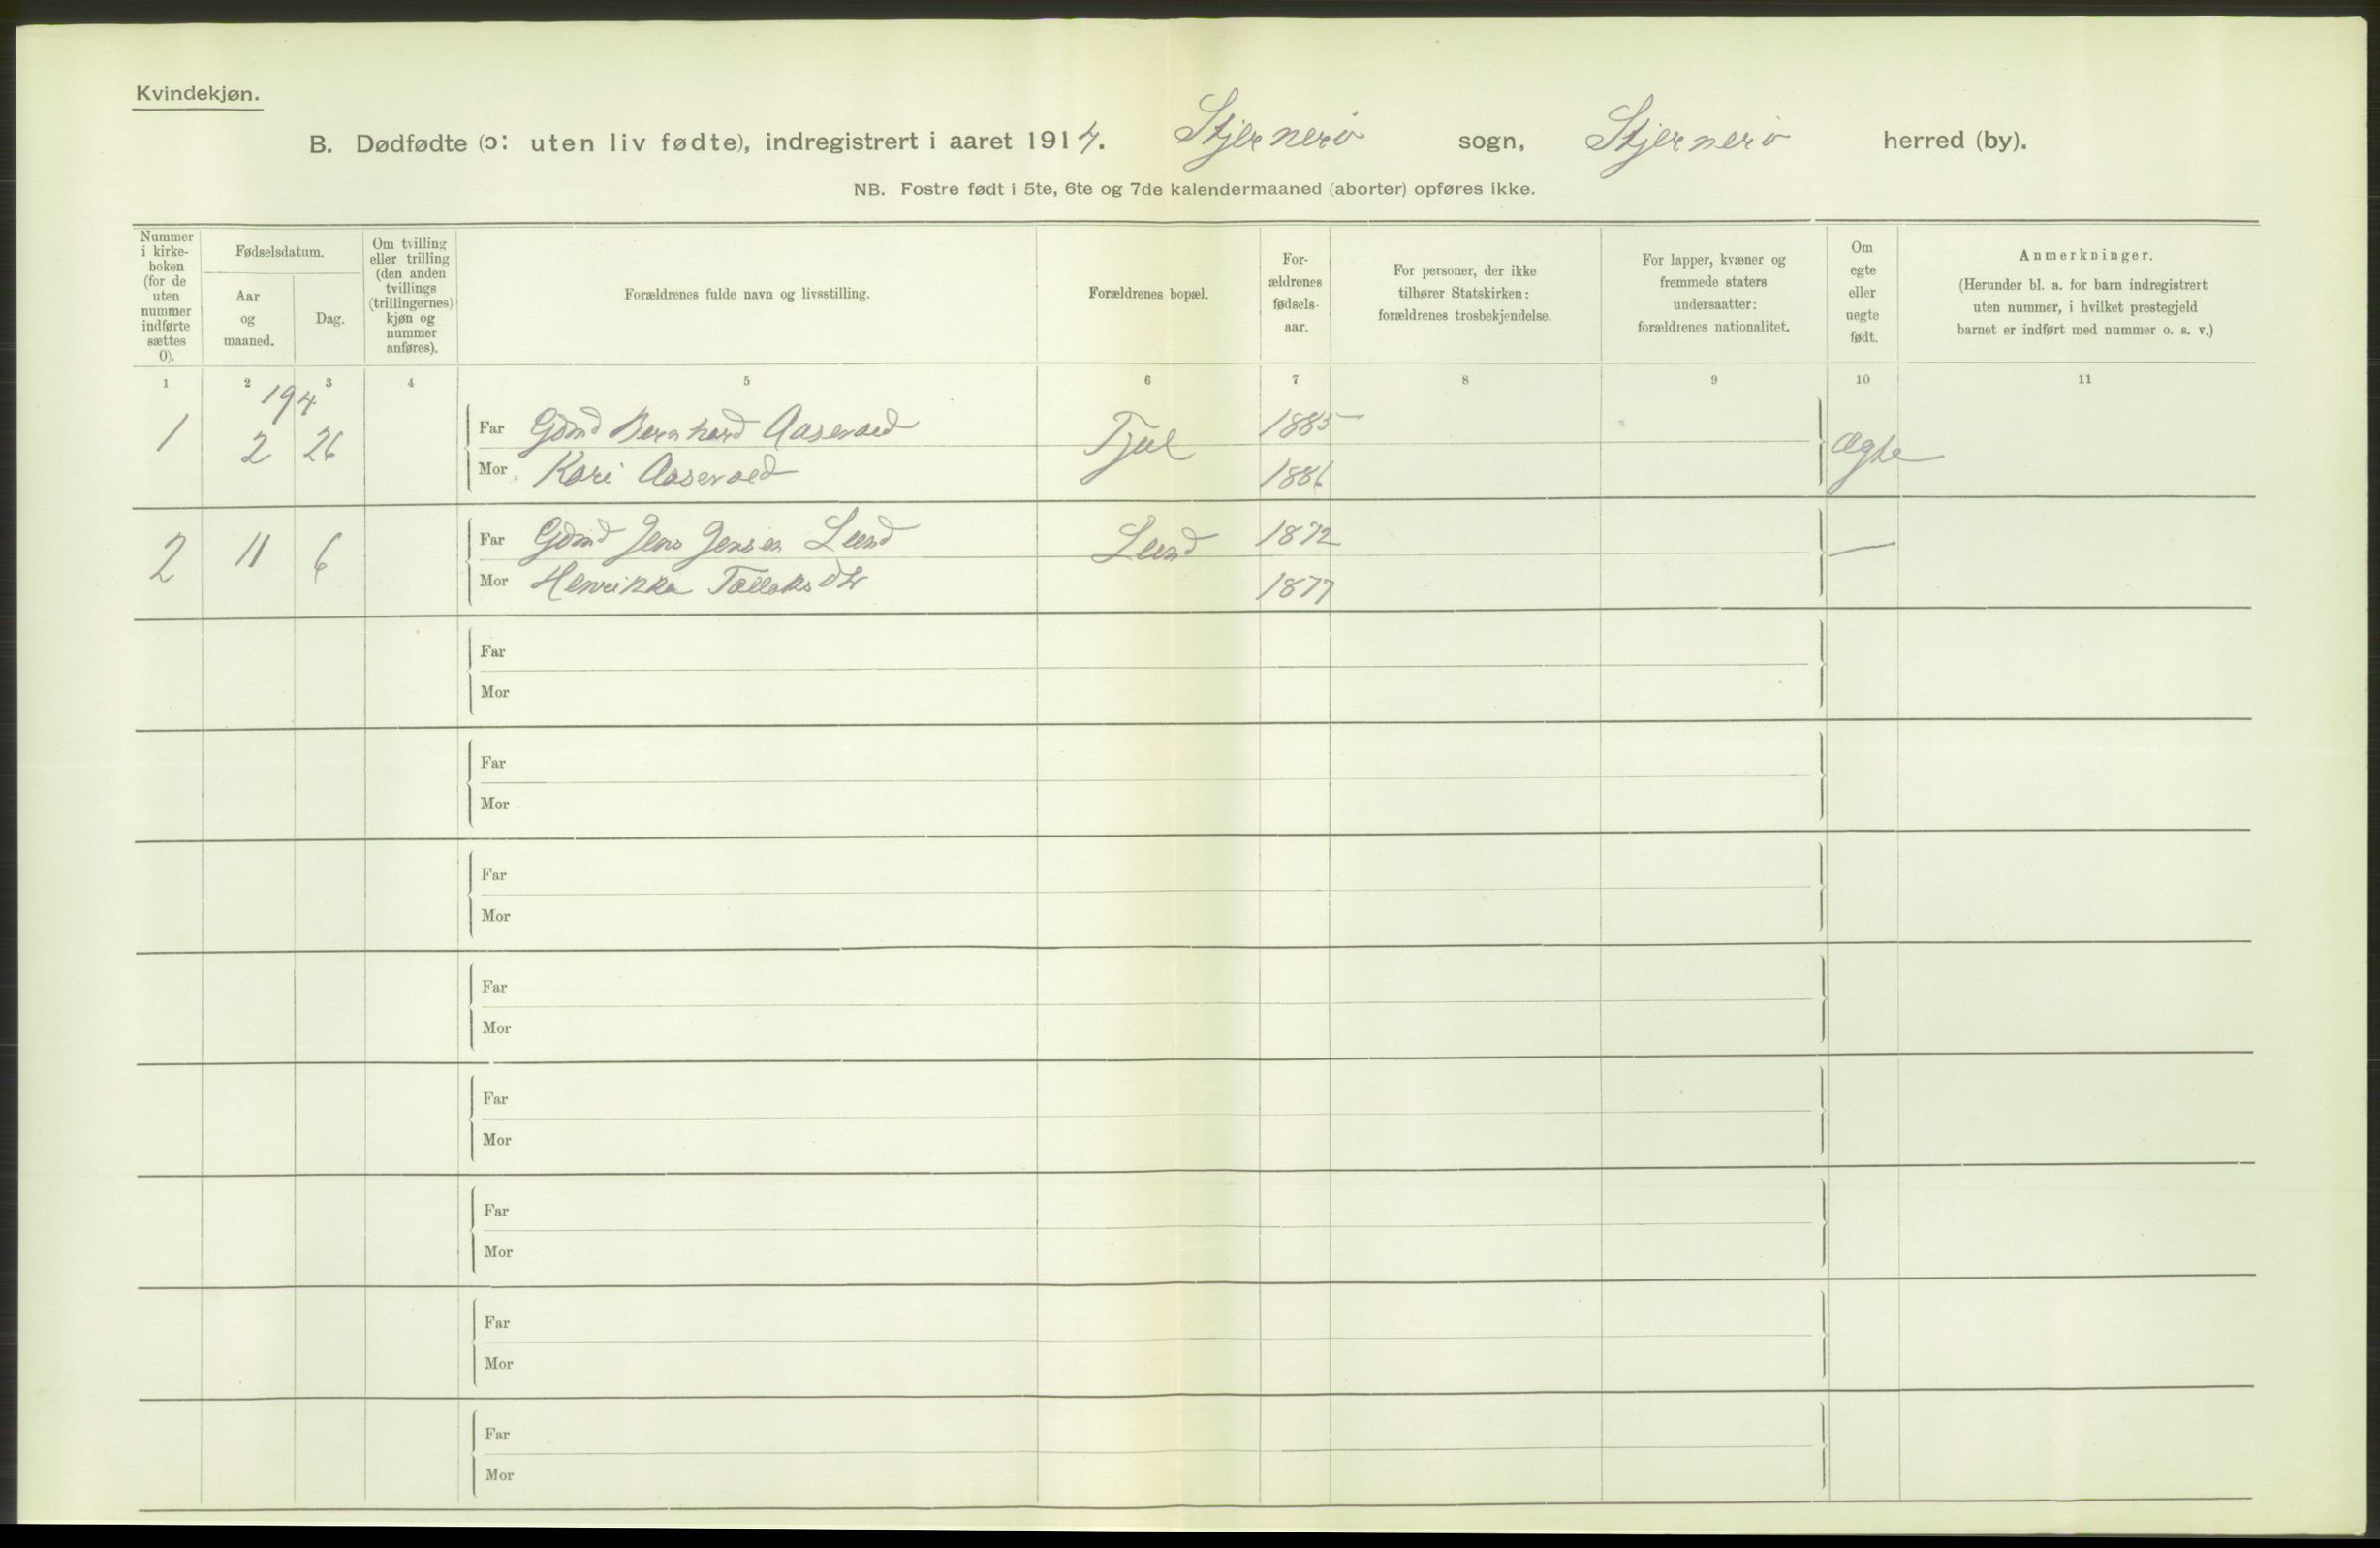 Kvindekjøn.
B. Dødfødte (ɔ: uten liv fødte), indregistrert i aaret 1914. Stjernerø sogn, Stjernerø herred (by).
NB. Fostre født i 5te, 6te og 7de kalendermaaned (aborter) opføres ikke.
Nummer
i kirke-
boken
(for de
uten
nummer
indførte
sættes
0).
Fødselsdatum.
Aar
og
maaned.
Dag.
Om tvilling
eller trilling
(den anden
tvillings
(trillingernes)
kjøn og
nummer
anføres).
Forældrenes fulde navn og livsstilling.
Forældrenes bopæl.
For-
ældrenes
fødsels-
aar.
For personer, der ikke
tilhører Statskirken:
forældrenes trosbekjendelse.
For lapper, kvæner og
fremmede staters
undersaatter:
forældrenes nationalitet.
Om
egte
eller
uegte
født.
Anmerkninger.
(Herunder bl. a. for barn indregistrert
uten nummer, i hvilket prestegjeld
barnet er indført med nummer o. s. v.)
1 2 3 4 5 6 7 8 9 10 11
194
1 2 26 Far Gdmd Bernhard Aasevaed Tjul 1885 Ægte
Mor Kari Aasevaed 1886
2 11 6 Far Gdmd Jens Jensen Lund Lund 1872 —
Mor Henrikka Tollaksdtr 1877
Far
Mor
Far
Mor
Far
Mor
Far
Mor
Far
Mor
Far
Mor
Far
Mor
Far
Mor